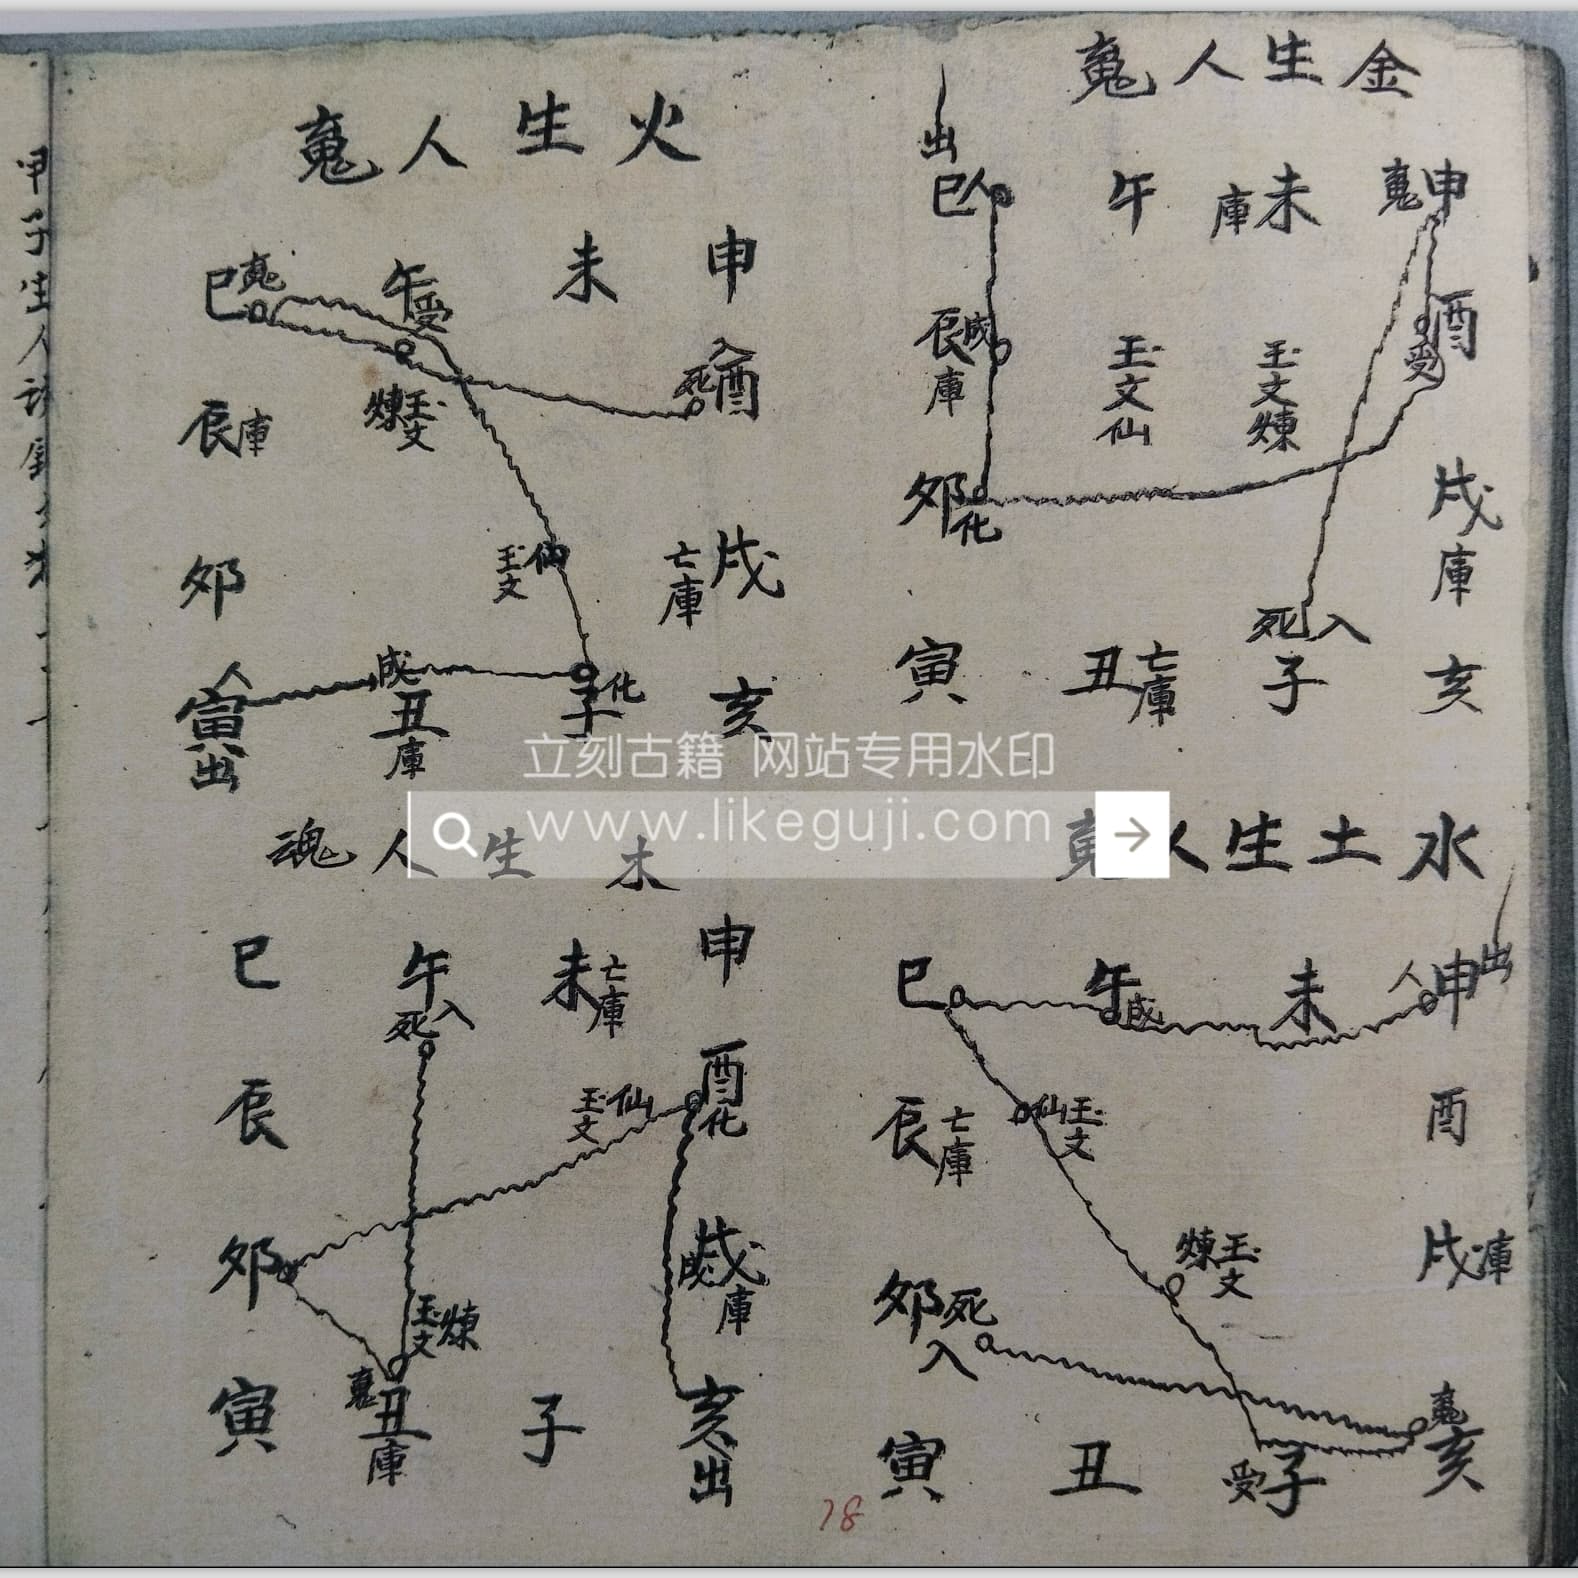 金生人䰟
出
申䰟 未庫 午 巳人
酉受 玉文煉 玉文仙 辰成庫
戌庫 夘化
亥 子 入死 丑亡庫 寅
火生人䰟
申 未 午受 巳䰟
入酉死 玉文煉 辰庫
戌亡庫 玉文仙 夘
亥 子化 丑成庫 寅人出
水土生人䰟
申人出 未 午成 巳
酉 玉文仙 辰亡庫
戌庫 玉文煉 夘死入
亥䰟 子受 丑 寅
木生人魂
申 未亡庫 午入死 巳
酉化 玉文仙 辰
戌成庫 夘
玉文煉
亥出 子 丑䰟庫 寅
甲子生人
18
立刻古籍 网站专用水印
www.likeguji.com